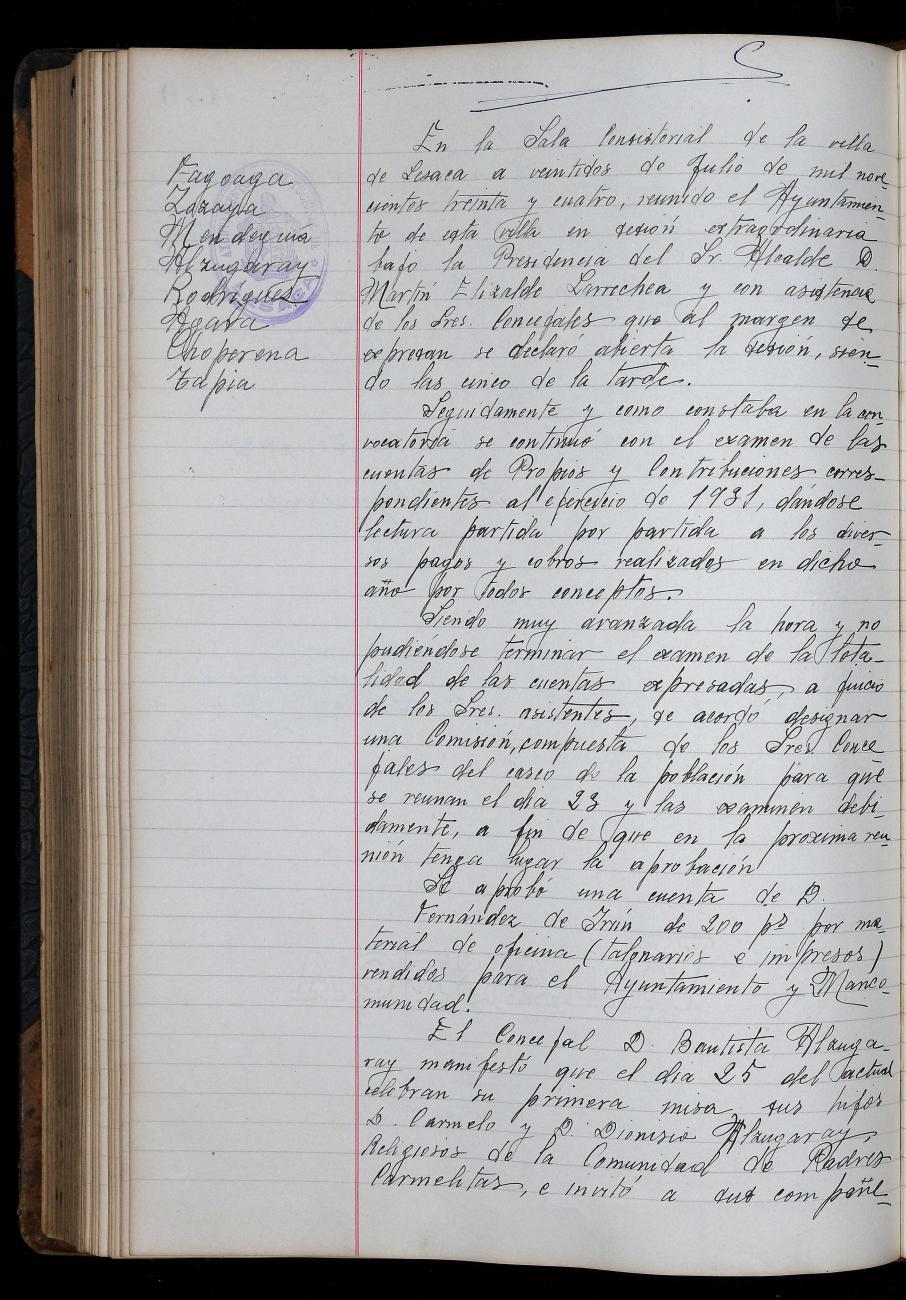 Fagoaga
Zozaya
Mendeguia
Alzugaray
Rodríguez
Agara
Choperena
Tapia
En la Sala Consistorial de la villa
de Lesaca a veintidos de Julio de mil nove-
cientos treinta y cuatro, reunido el Ayuntamien-
to de esta villa en sesión extraordinaria
bajo la Presidencia del Sr. Alcalde D.
Martín Elizalde Larrechea y con asistencia
de los Sres. Concejales que al margen se
expresan se declaró abierta la sesión, sien-
do las cinco de la tarde.
Seguidamente y como constaba en la con-
vocatoria se continuó con el examen de las
cuentas de Propios y Contribuciones corres-
pondientes al ejercicio de 1931, dándose
lectura partida por partida a los diver-
sos pagos y cobros realizados en dicho
año por todos conceptos.
Siendo muy avanzada la hora y no
pudiéndose terminar el examen de la tota-
lidad de las cuentas expresadas, a juicio
de los Sres. asistentes, se acordó designar
una Comisión, compuesta de los Sres. Conce
jales del casco de la población para que
se reunan el dia 23 y las examinen debi-
damente, a fin de que en la proxima reu-
nión tenga lugar la aprobación
Se aprobó una cuenta de D.
Fernández de Irún de 200 pts por ma-
terial de oficina (talonarios e impresos)
vendidos para el Ayuntamiento y Manco-
munidad.
El Concejal D. Bautista Alzuga-
ray manifestó que el dia 25 del actual
celebran su primera misa sus hijos
D. Carmelo y D. Dionisio Alzugaray,
Religiosos de la Comunidad de Padres
Carmelitas, e invitó a sus compañe-